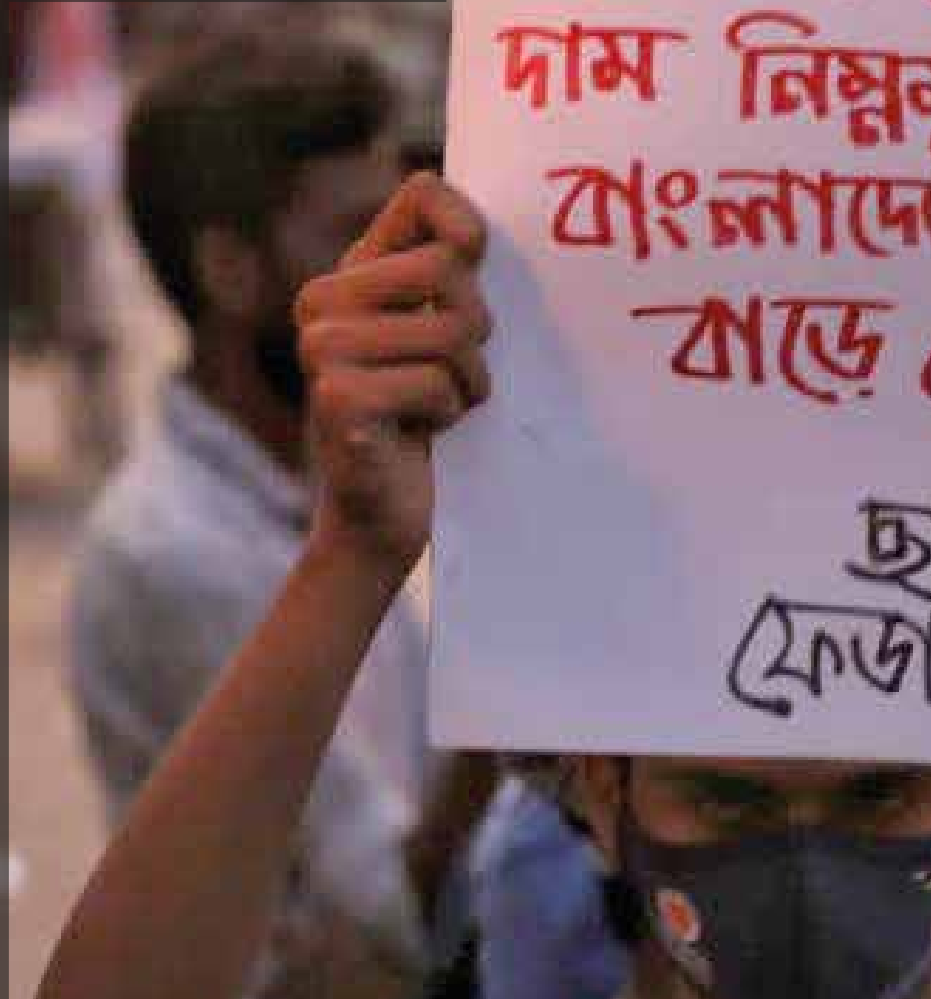 দাম নিম্ন
বাংলাদে
বাড়ে
ছ
ফেডা